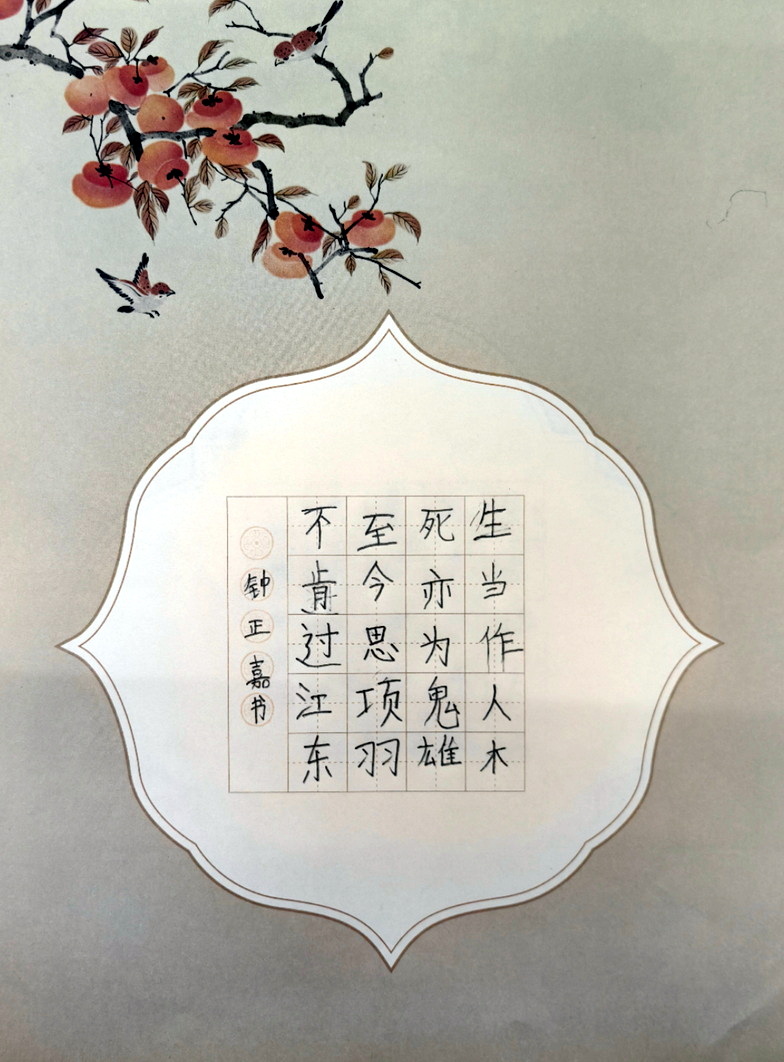 生当作人木
死亦为鬼雄
至今思项羽
不肯过江东
钟正嘉书